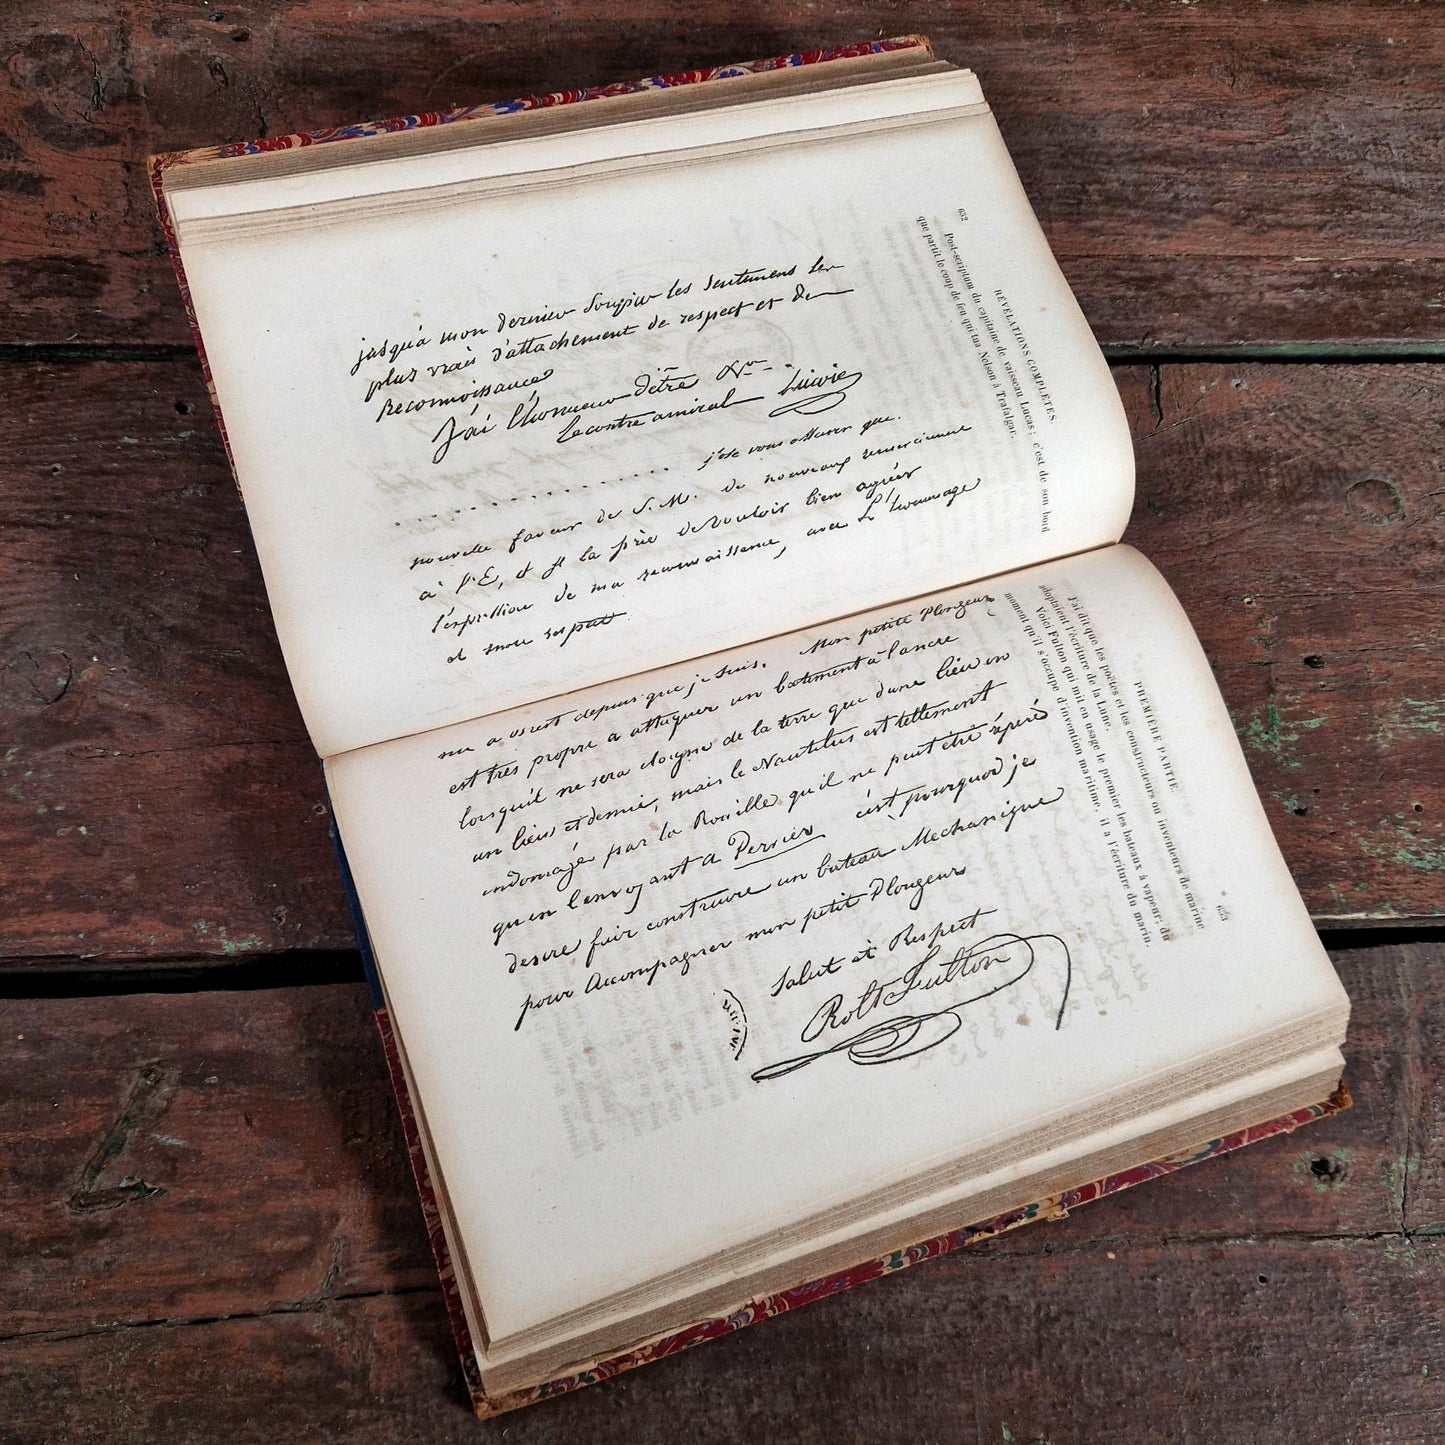 632
RÉVÉLATIONS COMPLÈTES.
Post-scriptum du capitaine de vaisseau Lucas; c'est de son bord
que partit le coup de feu qui tua Nelson à Trafalgar.
jusqu'à mon dernier Soupir les Sentimens les
plus vrais d'attachement de respect et de
Reconnoissance
J'ai l'honneur d'être
Le contre amiral Lucas
j'ose vous assurer que
nouvelle faveur de S. M. de nouveau remerciemens
à S. E, et la prie de vouloir bien agréer
l'expression de ma reconnaissance, avec L'hommage
de mon respect
PREMIÈRE PARTIE.
633
J'ai dit que les poètes et les constructeurs ou inventeurs de marine
adoptaient l'écriture de la Lune.
Voici Fulton qui mit en usage le premier les bateaux à vapeur; du
moment qu'il s'occupe d'invention maritime, il a l'écriture du marin.
depuis que je suis. Mon petite Plongeur
est très propre a attaquer un batiment à lancre
lorsquil ne sera eloigne de la terre que dune lieu ou
un lieu et demie, mais le Nautilus est tellement
indomajé par la Rouille quil ne peut être réparé
quen l'envoyant a Perrier c'est pourquoi je
desire fair construire un bateau Mechanique
pour Accompagner mon petit Plongeur
Salut et Respect
Robt Fulton